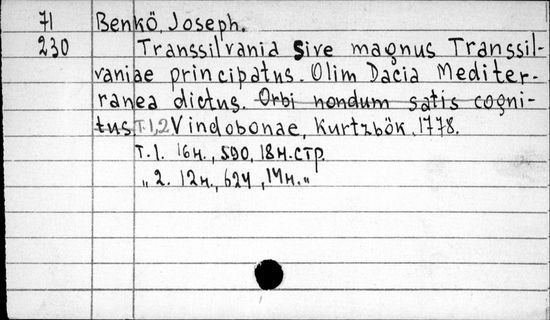 71 Benkö, Joseph.
230 Transsilvania sive magnus Transsil-
vaniae principatus. Olim Dacia Mediter-
ranea dictus. Orbi nondum satis cogni-
tus. T.1,2 Vindobonae, Kurtzbök, 1778.
T.1. 16н., 590, 18н. стр.
„ 2. 12н., 624, 14н. „